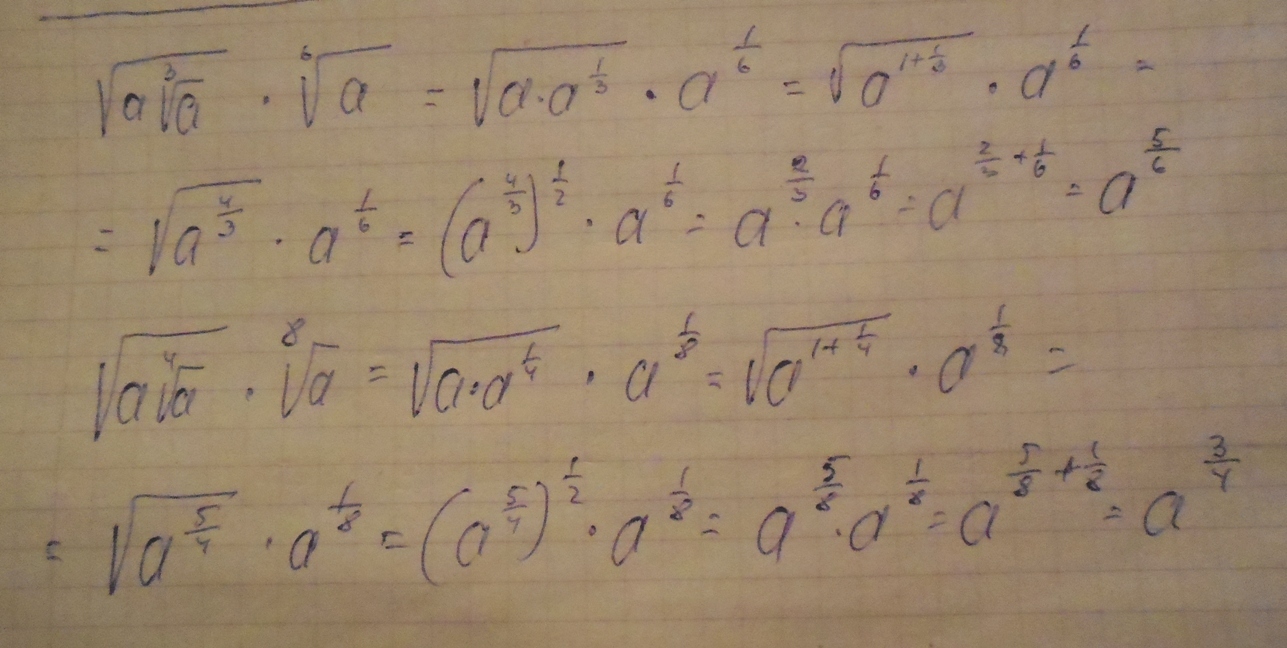 √(a∛a) · ⁶√a = √(a·a^(1/3)) · a^(1/6) = √(a^(1+1/3)) · a^(1/6) =
= √(a^(4/3)) · a^(1/6) = (a^(4/3))^(1/2) · a^(1/6) = a^(2/3) · a^(1/6) = a^(2/3+1/6) = a^(5/6)
√(a∜a) · ⁸√a = √(a·a^(1/4)) · a^(1/8) = √(a^(1+1/4)) · a^(1/8) =
= √(a^(5/4)) · a^(1/8) = (a^(5/4))^(1/2) · a^(1/8) = a^(5/8) · a^(1/8) = a^(5/8+1/8) = a^(3/4)